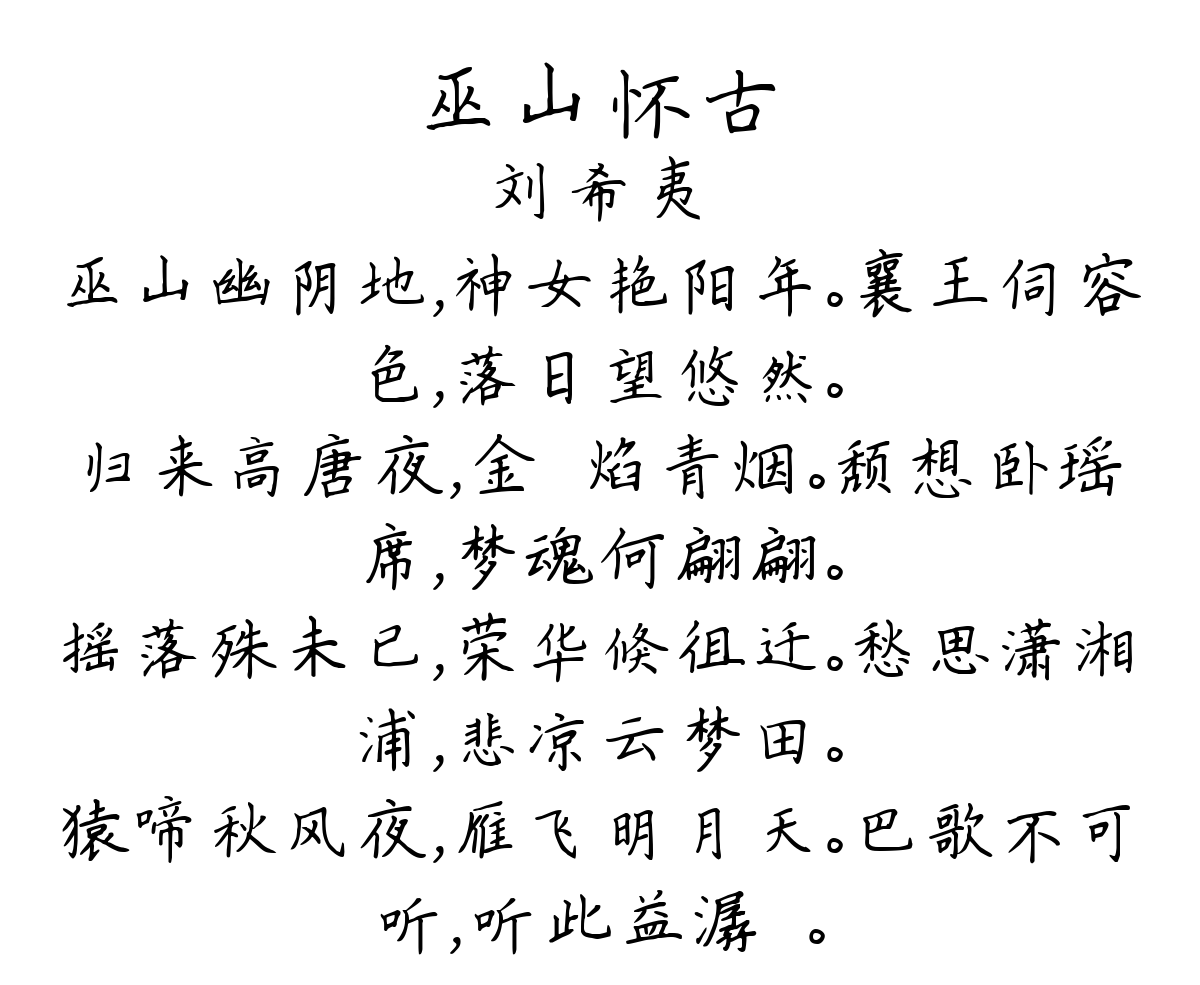 巫山怀古
刘希夷
巫山幽阴地,神女艳阳年。襄王伺容
色,落日望悠然。
归来高唐夜,金 焰青烟。颓想卧瑶
席,梦魂何翩翩。
摇落殊未已,荣华倏徂迁。愁思潇湘
浦,悲凉云梦田。
猿啼秋风夜,雁飞明月天。巴歌不可
听,听此益潺 。